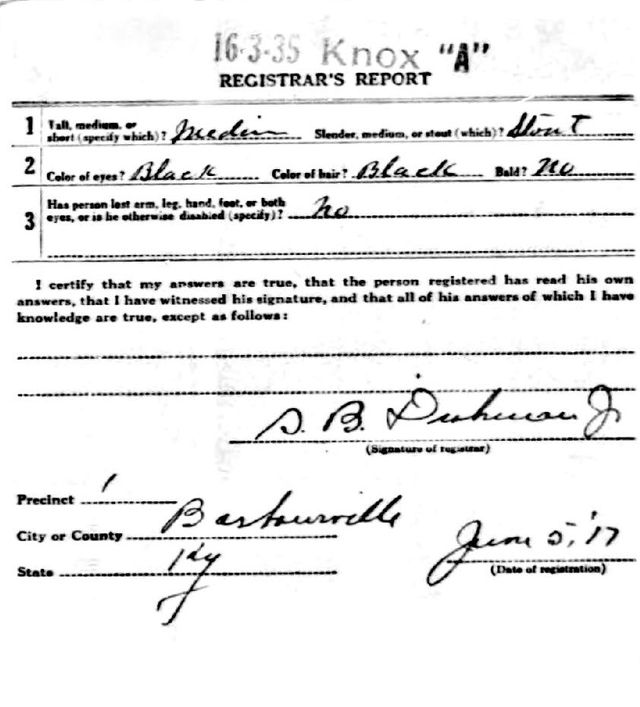 16-3-35 Knox "A"
REGISTRAR'S REPORT
1 Tall, medium, or short (specify which)? Medium Slender, medium, or stout (which)? Stout
2 Color of eyes? Black Color of hair? Black Bald? No
3 Has person lost arm, leg, hand, foot, or both eyes, or is he otherwise disabled (specify)? No
I certify that my answers are true, that the person registered has read his own
answers, that I have witnessed his signature, and that all of his answers of which I have
knowledge are true, except as follows:
S. B. Dishman Jr
(Signature of registrar)
Precinct 1
City or County Barbourville
State Ky
June 5, '17
(Date of registration)